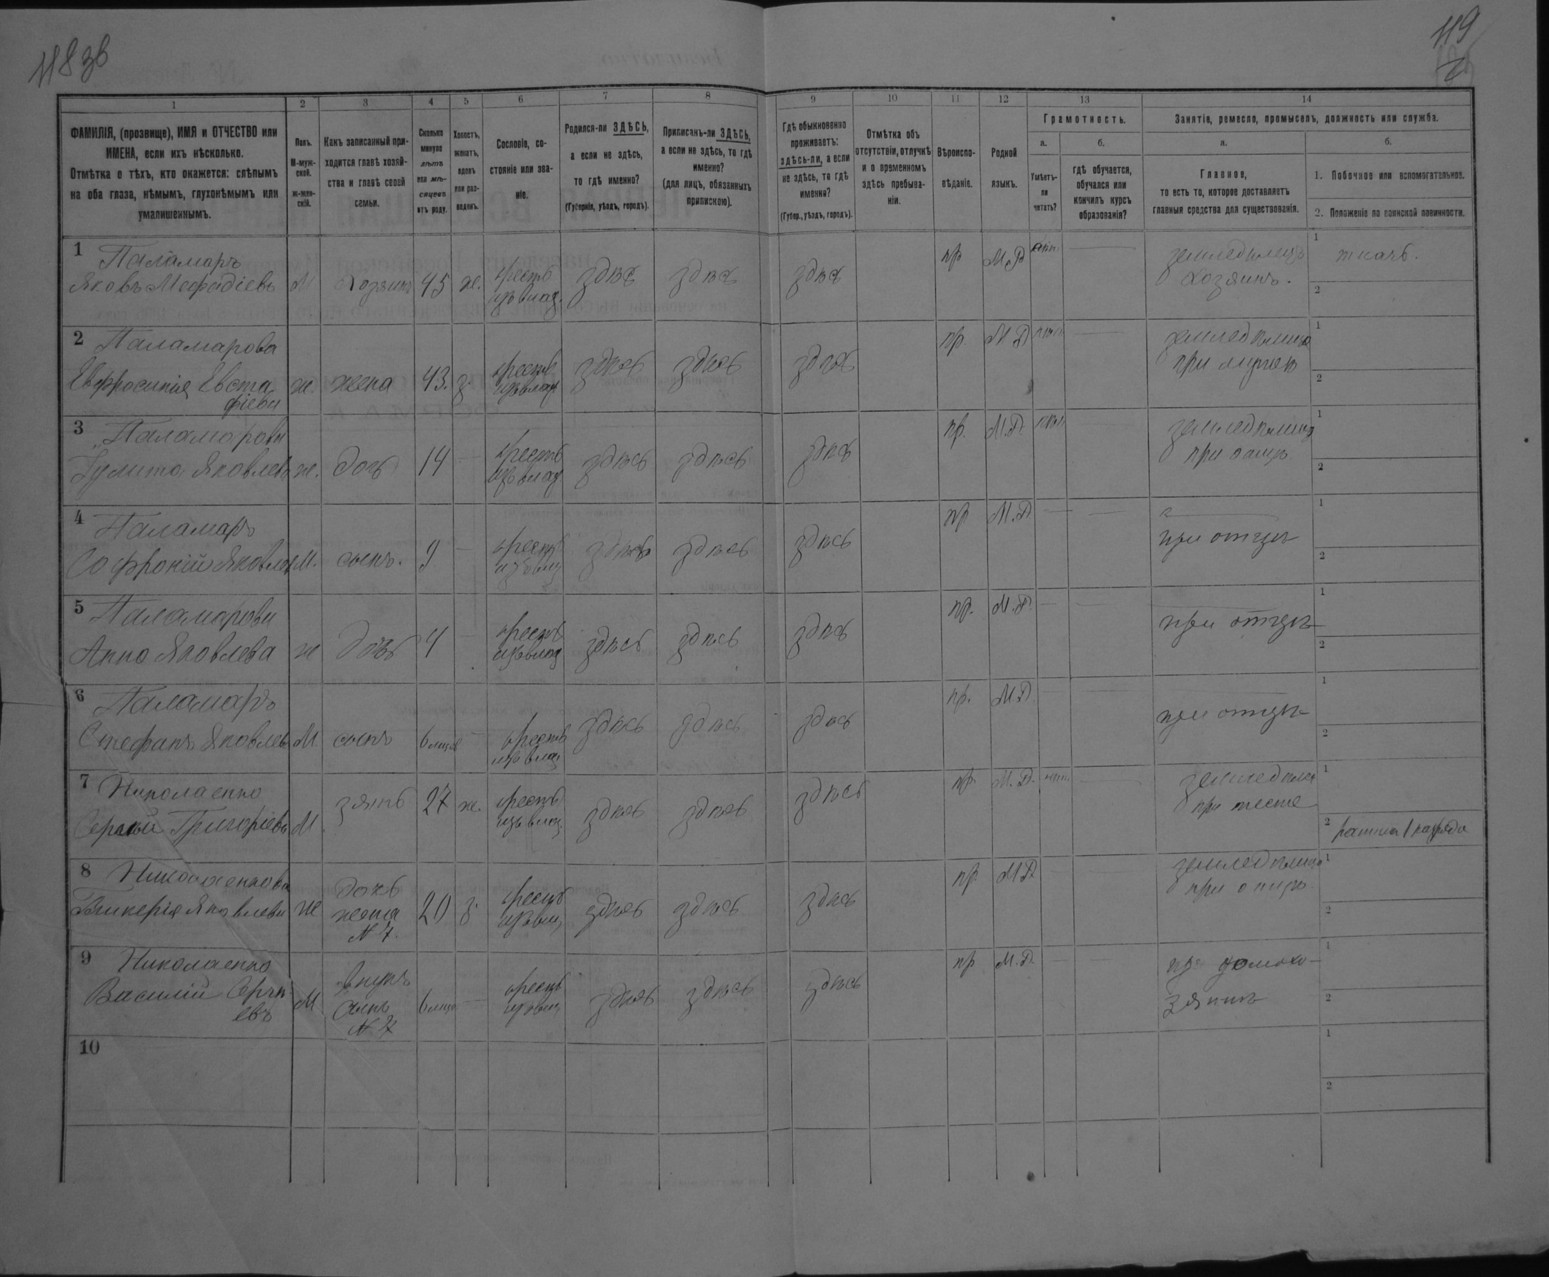 118 зв
119
1
2
3
4
5
6
7
8
9
10
11
12
13
14
ФАМИЛІЯ, (прозвище), ИМЯ и ОТЧЕСТВО или
ИМЕНА, если ихъ нѣсколько.
Отмѣтка о тѣхъ, кто окажется: слѣпымъ
на оба глаза, нѣмымъ, глухонѣмымъ или
умалишеннымъ.
Полъ.
М-муж-
ской.
ж-жен-
скій.
Какъ записанный при-
ходится главѣ хозяй-
ства и главѣ своей
семьи.
Сколько
минуло
лѣтъ
или мѣ-
сяцевъ
отъ роду.
Холостъ,
женатъ,
вдовъ
или раз-
веденъ.
Сословіе, со-
стояніе или зва-
ніе.
Родился-ли ЗДѢСЬ,
а если не здѣсь,
то гдѣ именно?
(Губернія, уѣздъ, городъ).
Приписанъ-ли ЗДѢСЬ,
а если не здѣсь, то гдѣ
именно?
(для лицъ, обязанныхъ
припискою).
Гдѣ обыкновенно
проживаетъ:
здѣсь-ли, а если
не здѣсь, то гдѣ
именно?
(Губер., уѣздъ, городъ).
Отмѣтка объ
отсутствіи, отлучкѣ
и о временномъ
здѣсь пребыва-
ніи.
Вѣроиспо-
вѣданіе.
Родной
языкъ.
Грамотность.
а.
Умѣетъ-
ли
читать?
б.
гдѣ обучается,
обучался или
кончилъ курсъ
образованія?
Занятіе, ремесло, промыселъ, должность или служба.
а.
Главное,
то есть то, которое доставляетъ
главныя средства для существованія.
б.
1. Побочное или вспомогательное.
2. Положеніе по воинской повинности.
1 Паламаръ
Яковъ Мефодіевъ М Хозяинъ 45 ж. крестъ
изъ влад. здѣсь здѣсь здѣсь пр М.Р земледѣлецъ
хозяинъ. 1 ткачъ.
2
2 Паламарова
Евфросинія Евста
фіева ж. жена 43 з крестъ
изъ влад здѣсь здѣсь здѣсь пр. М Р земледѣлица
при мужѣ 1
2
3 Паламарова
Улита Яковлев ж. дочь 14 крестъ
изъ влад здѣсь здѣсь здѣсь пр. М.Р. земледѣлица
при отцѣ 1
2
4 Паламаръ
Софроній Яковлев М. сынъ. 9 крестъ
изъ влад здѣсь здѣсь здѣсь пр М.Р при отцѣ 1
2
5 Паламарова
Анна Яковлева ж дочь 4 крестъ
изъ влад здѣсь здѣсь здѣсь пр. М.Р. при отцѣ 1
2
6 Паламаръ
Стефанъ Яковлев М сынъ 6 крестъ
изъ влад здѣсь здѣсь здѣсь пр. М.Р при отцѣ 1
2
7 Николаенко
Сергѣй Григорьевъ М зять 27 ж. крестъ
изъ влад здѣсь здѣсь здѣсь пр. М.Р. земледѣлец
при тестѣ 1
2
8 Николаенкова
Гликерія Яковлева ж дочь
жена
№ 7. 20 з. крестъ
изъ влад здѣсь здѣсь здѣсь пр М.Р земледѣлица
при отцѣ 1
2
9 Николаенко
Василій Сергѣ
евъ М внукъ
сынъ
№ 7 6 крестъ
изъ влад здѣсь здѣсь здѣсь пр М.Р. при домохо-
зяинѣ 1
2
10 1
2